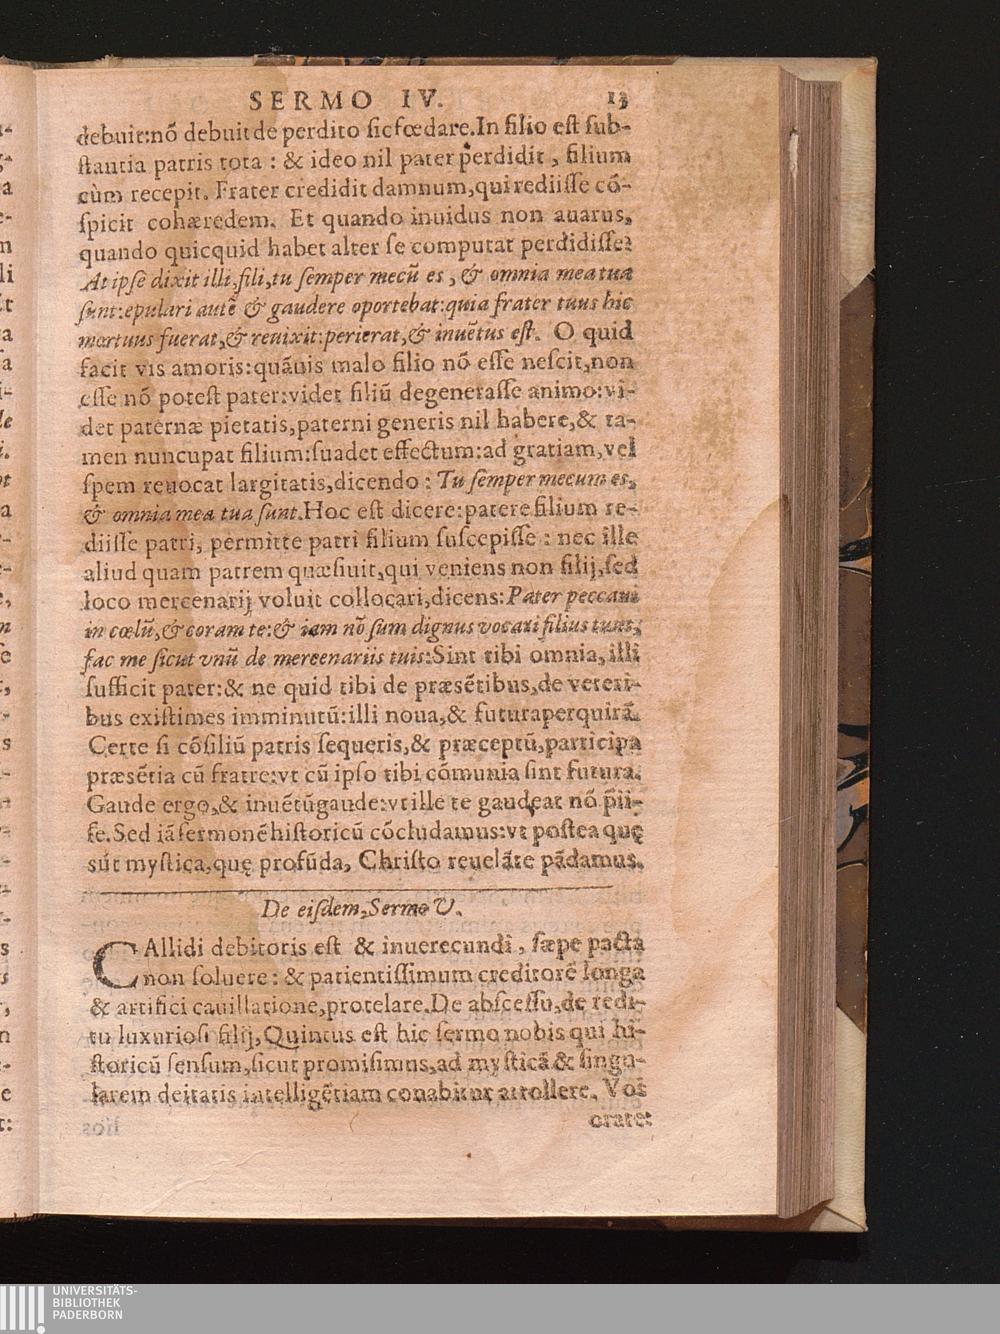 SERMO IV. 13
debuit:nõ debuit de perdito sic fœdare.In filio est sub-
stantia patris tota : & ideo nil pater perdidit , filium
cùm recepit. Frater credidit damnum,qui rediisse cõ-
spicit cohæredem. Et quando inuidus non auarus,
quando quicquid habet alter se computat perdidisse?
At ipse dixit illi,fili,tu semper mecũ es , & omnia mea tua
sunt:epulari autẽ & gaudere oportebat:quia frater tuus hic
mortuus fuerat,& reuixit:perierat,& inuẽtus est. O quid
facit vis amoris:quãuis malo filio nõ esse nescit,non
esse nõ potest pater:videt filiũ degenerasse animo:vi-
det paternæ pietatis,paterni generis nil habere,& ta-
men nuncupat filium:suadet effectum:ad gratiam,vel
spem reuocat largitatis,dicendo : Tu semper mecum es,
& omnia mea tua sunt.Hoc est dicere:patere filium re-
diisse patri, permitte patri filium suscepisse : nec ille
aliud quam patrem quæsiuit,qui veniens non filij,sed
loco mercenarij voluit collocari,dicens:Pater peccaui
in cœlũ,& coram te:& iam nõ sum dignus vocari filius tuus,
fac me sicut vnũ de mercenariis tuis:Sint tibi omnia,illi
sufficit pater:& ne quid tibi de præsẽtibus,de veteri-
bus existimes imminutũ:illi noua,& futura perquirã.
Certe si cõsiliũ patris sequeris,& præceptũ,participa
præsẽtia cũ fratre:vt cũ ipso tibi cõmunia sint futura.
Gaude ergo,& inuẽtũ gaude:vt ille te gaudeat nõ p̃ii-
se.Sed iã sermonẽ historicũ cõcludamus:vt postea quę
sũt mystica,quę profũda, Christo reuelãte pãdamus.
De eisdem,Sermo V.
CAllidi debitoris est & inuerecundi , sæpe pacta
non soluere : & patientissimum creditorẽ longa
& artifici cauillatione,protelare.De abscessu,de redi-
tu luxuriosi filij,Quintus est hic sermo nobis qui hi-
storicũ sensum,sicut promisimus,ad mysticã & singu-
larem deitatis intelligẽtiam conabitur attollere. Vos
orate:
UNIVERSITÄTS-
BIBLIOTHEK
PADERBORN